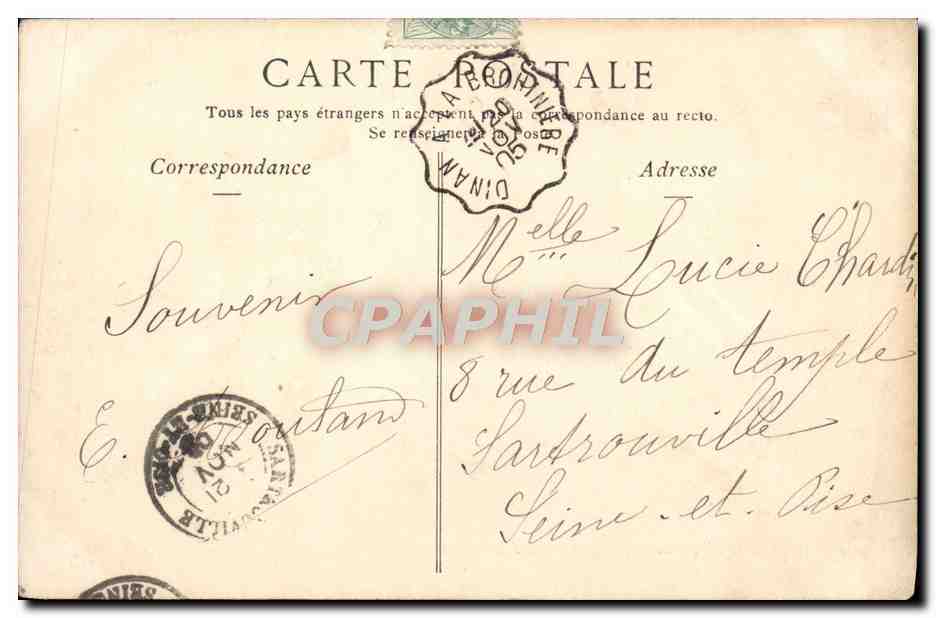 CARTE POSTALE
Tous les pays étrangers n'acceptent pas la correspondance au recto.
Se renseigner à la Poste
Correspondance
Souvenir
E. Moutand
Adresse
Melle Lucie Chardin
8 rue du temple
Sartrouville
Seine-et-Oise
DINAN A LA BROHINIERE
20
NOV
05
SARTROUVILLE
SEINE-ET-OISE
21
NOV
05
SEINE
CPAPHIL